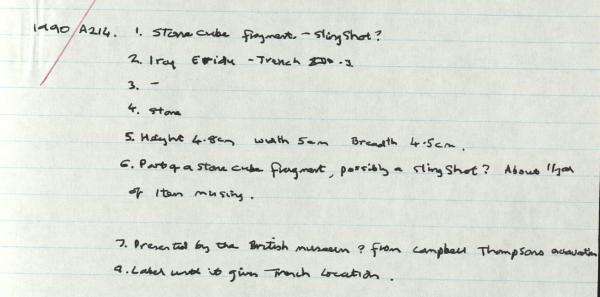 1990/A214. 1. Stone cube fragment - slingshot?
2. Iraq Eridu - Trench 3
3. -
4. Stone
5. Height 4.8cm width 5cm Breadth 4.5cm.
6. Part of a stone cube fragment, possibly a slingshot? About
of item missing.
7. Presented by the British museum? from Campbell Thompsons
Label with it gives Trench Location.